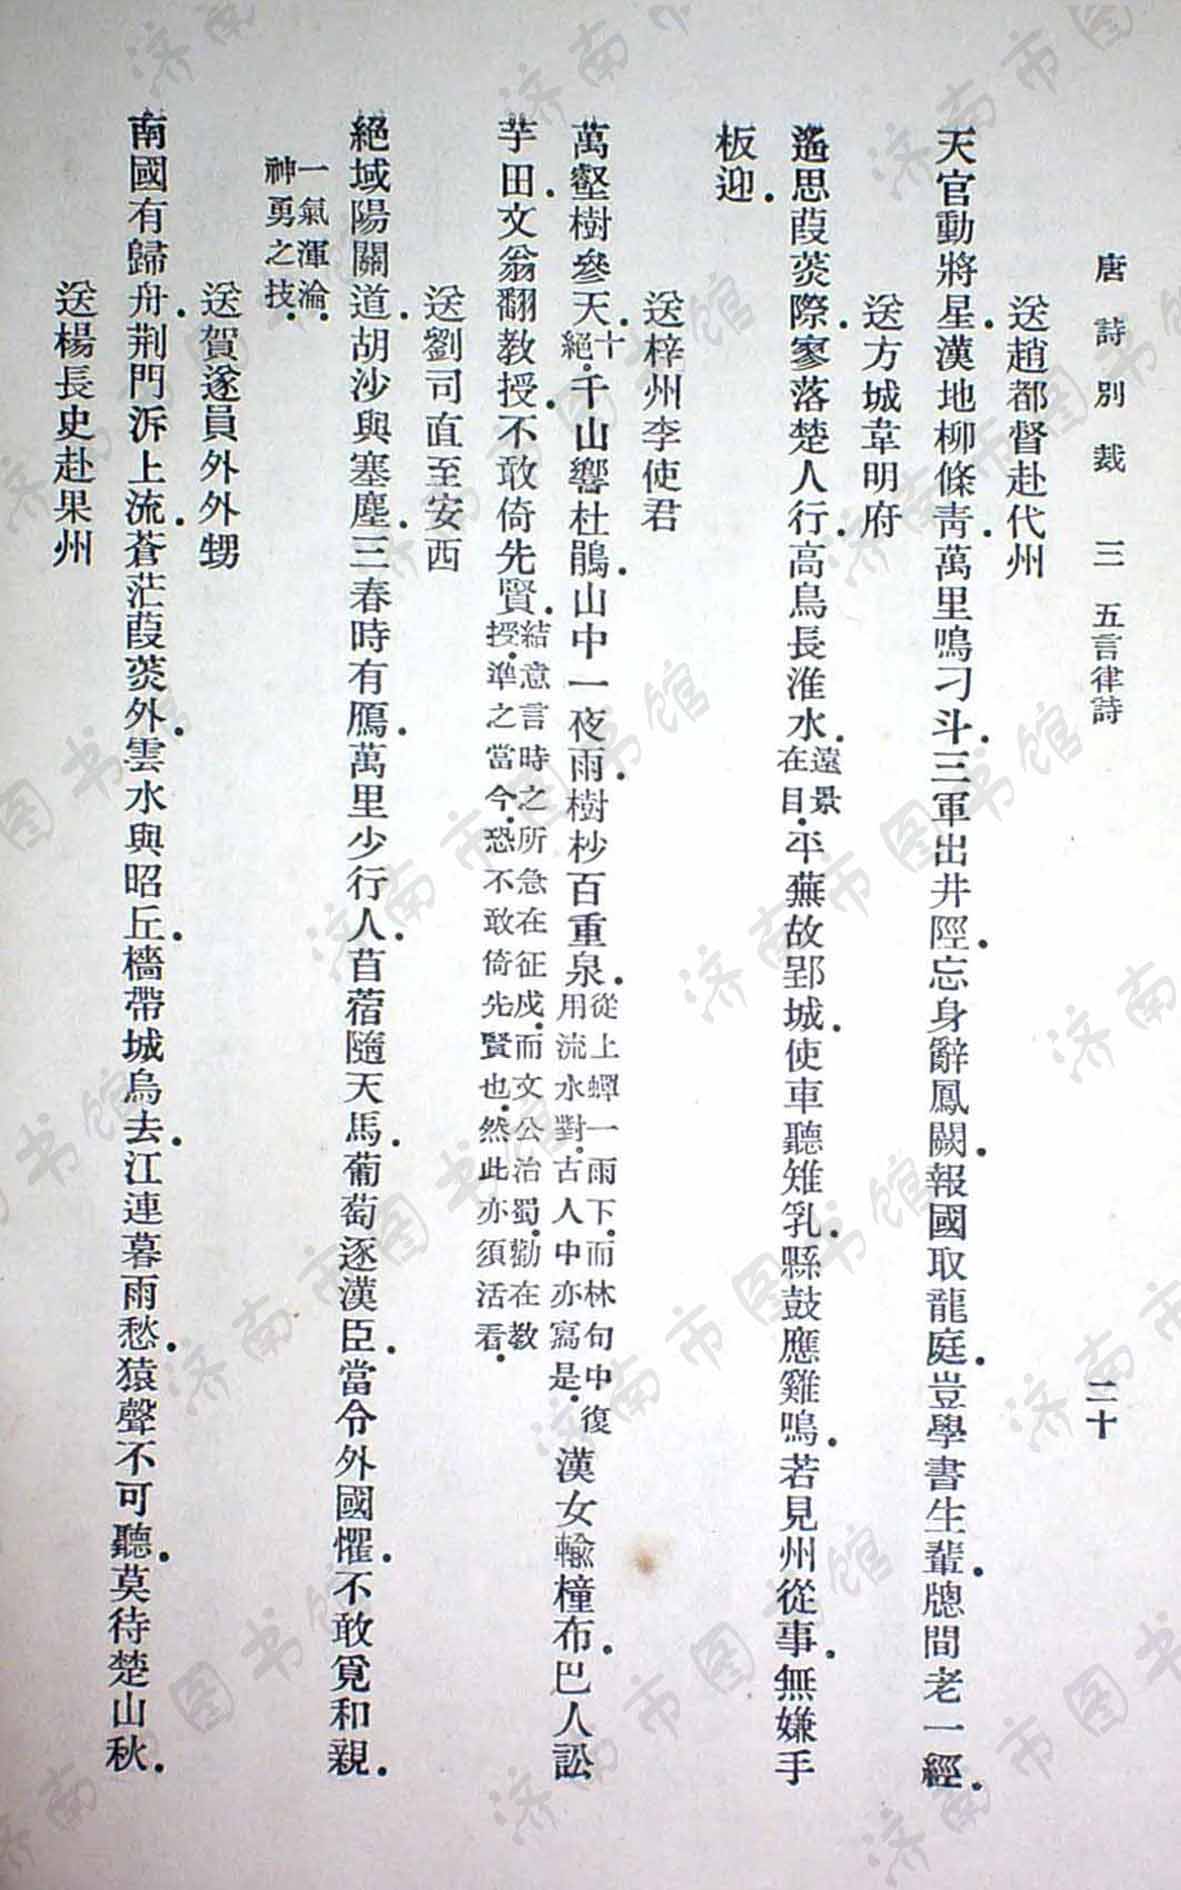 唐詩別裁 三 五言律詩 二十
送趙都督赴代州
天官動將星.漢地柳條靑.萬里鳴刁斗.三軍出井陘.忘身辭鳳闕.報國取龍庭.豈學書生輩.牕間老一經.
送方城韋明府
遙思葭菼際.寥落楚人行.高鳥長淮水.遠景在目.平蕪故郢城.使車聽雉乳.縣鼓應雞鳴.若見州從事.無嫌手
板迎.
送梓州李使君
萬壑樹參天.十絕.千山響杜鵑.山中一夜雨.樹杪百重泉.從上蟬一雨下.而林句中復用流水對.古人中亦寫是.漢女輸橦布.巴人訟
芋田.文翁翻教授.不敢倚先賢.結意言時之所急在征戍.而文公治蜀.勸在教授.準之當今.恐不敢倚先賢也.然此亦須活看.
送劉司直至安西
絕域陽關道.胡沙與塞塵.三春時有鴈.萬里少行人.苜蓿隨天馬.葡萄逐漢臣.當令外國懼.不敢覓和親.
一氣渾淪.神勇之技.
送賀遂員外外甥
南國有歸舟.荆門泝上流.蒼茫葭菼外.雲水與昭丘.檣帶城烏去.江連暮雨愁.猿聲不可聽.莫待楚山秋.
送楊長史赴果州
济南市图书馆